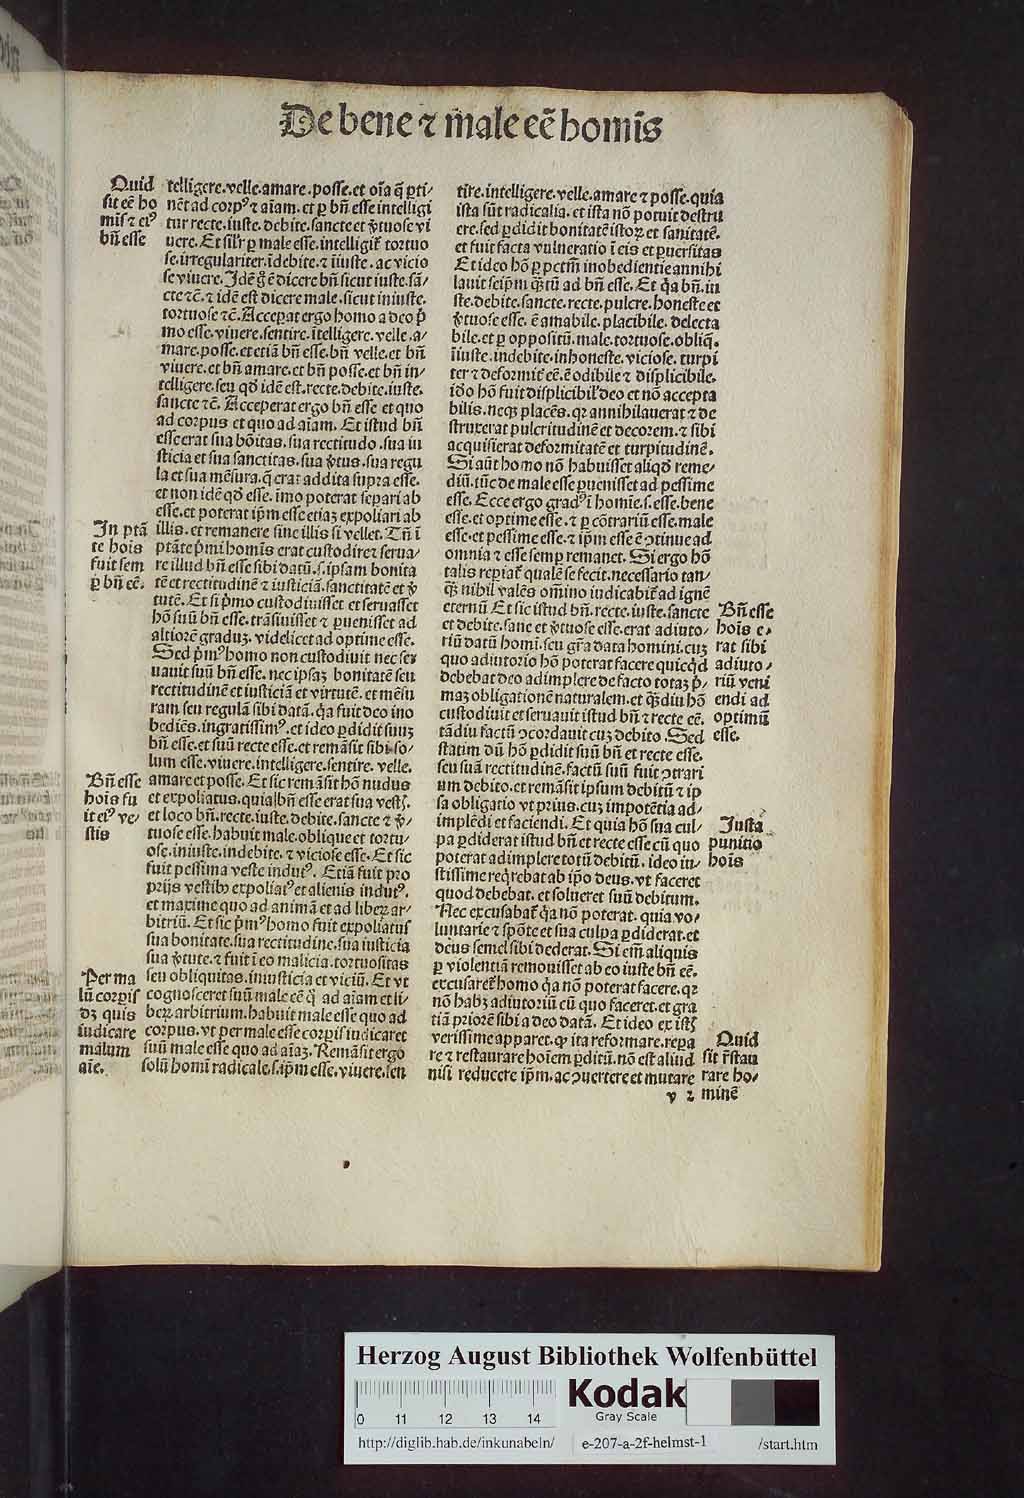 De bene ⁊ male eē homīs
Quid
sit eē ho
mīs ⁊ eiꝰ
bñ esse
telligere.velle.amare.posse.et oīa q̄ ꝑti-
nēt ad corpꝰ ⁊ aīam.et ꝑ bñ esse intelligi
tur recte.iuste.debite.sancte et v̓tuose vi
uere. Et sil̓r ꝑ male esse.intelligit̄ tortuo
se.irregulariter.īdebite.⁊ īiuste.ac vicio
se viuere. Idē g̊ ē dicere bñ sicut iuste.sā-
cte ⁊c̄.⁊ idē est dicere male.sicut iniuste.
tortuose ⁊c̄. Acceꝑat ergo homo a deo p̄
mo esse.viuere.sentire.ītelligere.velle.a-
mare.posse.et etiā bñ esse.bñ velle.et bñ
viuere.et bñ amare.et bñ posse.et bñ in-
telligere.seu qd̓ idē est.recte.debite.iuste.
sancte ⁊c̄. Acceperat ergo bñ esse et quo
ad corpus et quo ad aīam. Et istud bñ
esse erat sua bōitas.sua rectitudo.sua iu
sticia et sua sanctitas.sua v̓tus.sua regu
la et sua mēsura.q̄ erat addita supra esse.
et non idē qd̓ esse.īmo poterat seꝑari ab
esse.et poterat ip̄m esse etiaꝫ expoliari ab
In ptā
te hoīs
fuit sem
ꝑ bñ eē.
illis.et remanere sine illis si vellet. Tñ ī
ptāte p̄mi homīs erat custodire ⁊ serua-
re illud bñ esse sibi datū.s.ipsam bonita
tē et rectitudinē ⁊ iusticiā.sanctitatē et v̓
tutē. Et si p̄mo custodiuisset et seruasset
hō suū bñ esse.trāsiuisset ⁊ ꝑuenisset ad
altiorē graduꝫ.videlicet ad optime esse.
Sed p̄mꝰ homo non custodiuit nec ser
uauit suū bñ esse.nec ipsaꝫ bonitatē seu
rectitudinē et iusticiā et virtutē.et mēsu
ram seu regulā sibi datā.q̓a fuit deo ino
bediēs.ingratissimꝰ.et ideo ꝑdidit suuꝫ
bñ esse.et suū recte esse.et remāsit sibi so-
lum esse.viuere.intelligere.sentire.velle.
Bñ esse
hoīs fu
it eiꝰ ve-
stis
amare et posse. Et sic remāsit hō nudus
et expoliatus.quia bñ esse erat sua vestꝭ.
et loco bñ.recte.iuste.debite.sancte ⁊ v̓-
tuose esse.habuit male.oblique et tortu-
ose.iniuste.indebite.⁊ viciose esse. Et sic
fuit pessima veste indutꝰ. Etiā fuit pro
prijs vestibꝰ expoliatꝰ et alienis indutꝰ.
et maxime quo ad animā et ad liberꝝ ar-
bitriū. Et sic p̄mꝰ homo fuit expoliatus
sua bonitate.sua rectitudine.sua iusticia
sua v̓tute.⁊ fuit ī eo malicia.tortuositas
Per ma
lū corꝑis
dꝫ quis
iudicare
malum
aīe.
seu obliquitas.iniusticia et viciū. Et vt
cognosceret suū male eē q̓ ad aīam et li-
berꝝ arbitrium.habuit male esse quo ad
corpus.vt per male esse corꝑis iudicaret
suū male esse quo ad aīaꝫ. Remāsit ergo
solū homī radicale.s.ip̄m esse.viuere.sen
tire.intelligere.velle.amare ⁊ posse.quia
ista sūt radicalia.et ista nō potuit destru
ere.sed ꝑdidit bonitatē istoꝝ et sanitatē.
et fuit facta vulneratio ī eis et ꝑuersitas
Et ideo hō ꝑ pctm̄ inobedientie annihi
lauit seip̄m qꝫtū ad bñ esse. Et q̓a bñ.iu
ste.debite.sancte.recte.pulcre.honeste et
v̓tuose esse.ē amabile.placibile.delecta
bile.et ꝑ oppositū.male.tortuose.obliq̄.
īiuste.indebite.inhoneste.viciose.turpi
ter ⁊ deformit̄ eē.ē odibile ⁊ displicibile.
iđo hō fuit displicibil̓ deo et nō accepta
bilis.neqꝫ placēs.qꝛ annihilauerat ⁊ de
struxerat pulcritudinē et decorem.⁊ sibi
acquisierat deformitatē et turpitudinē.
Si aūt homo nō habuisset aliqd̓ reme-
diū.tūc de male esse ꝑuenisset ad pessime
esse. Ecce ergo gradꝰ ī homīe.s.esse.bene
esse.et optime esse.⁊ ꝑ cōtrariū esse.male
esse.et pessime esse.⁊ ip̄m esse ē ꝯtinue ad
omnia ⁊ esse semꝑ remanet. Si ergo hō
talis reꝑiat̄ qualē se fecit.necessario tan-
qꝫ nihil valēs om̄ino iudicabit̄ ad ignē
eternū Et sic istud bñ.recte.iuste.sancte
et debite.sane et v̓tuose esse.erat adiuto-
riū datū homi.seu gr̄a data homini.cuꝫ
quo adiutorio hō poterat facere quicqd̓
debebat deo adimplere de facto totaꝫ p̄-
maꝫ obligationē naturalem.et qꝫdiu hō
custodiuit et seruauit istud bñ ⁊ recte eē.
tādiu factū ꝯcordauit cuꝫ debito. Sed
statim dū hō ꝑdidit suū bñ et recte esse.
seu suā rectitudinē.factū suū fuit ꝯtrari
um debito.et remāsit ipsum debitū ⁊ ip
sa obligatio vt prius.cuꝫ impotētia ad-
implēdi et faciendi. Et quia hō sua cul-
pa ꝑdiderat istud bñ et recte esse cū quo
poterat adimplere totū debitū.ideo iu-
stissime req̓rebat ab ip̄o deus.vt faceret
quod debebat.et solueret suū debitum.
Nec excusabat̄ q̓a nō poterat.quia vo-
luntarie ⁊ spōte et sua culpa ꝑdiderat.et
deus semel sibi dederat. Si em̄ aliquis
ꝑ violentiā remouisset ab eo iuste bñ eē.
excusaret̄ homo q̓a nō poterat facere.qꝛ
nō habꝫ adiutoriū cū quo faceret.et gra
tiā priorē sibi a deo datā. Et ideo ex istꝭ
verissime apparet.ꝙ ita reformare.reꝑa
re ⁊ restaurare hoīem ꝑditū.nō est aliud
nisi reducere ip̄m.ac ꝯuertere et mutare
Bñ esse
hoīs e-
rat sibi
adiuto-
riū veni
endi ad
optimū
esse.
Justa
punitio
hoīs
Quid
sit r̄stau
rare ho-
minē
v 2
Herzog August Bibliothek Wolfenbüttel
0 11 12 13 14
Kodak
Gray Scale
http://diglib.hab.de/inkunabeln/ e-207-a-2f-helmst-1 /start.htm